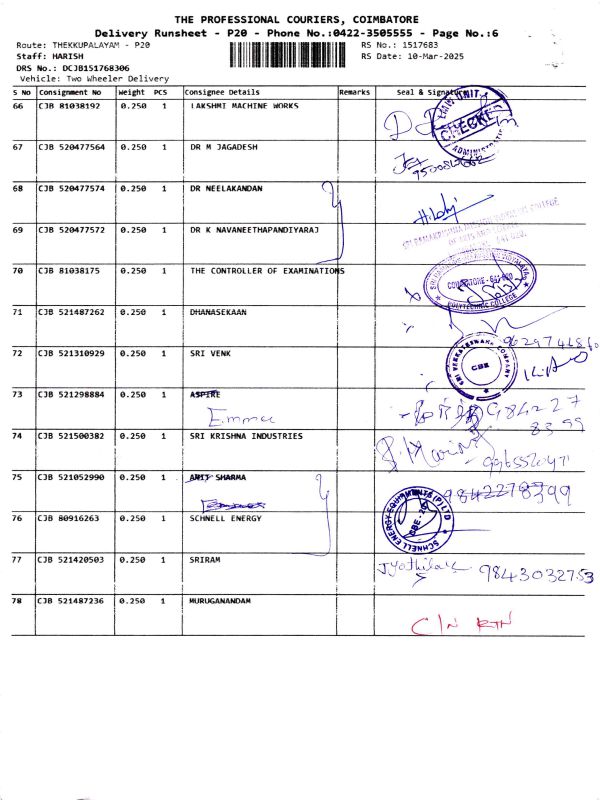 THE PROFESSIONAL COURIERS, COIMBATORE
Delivery Runsheet - P20 - Phone No.:0422-3505555 - Page No.:6
Route: THEKKUPALAYAM - P20 RS No.: 1517683
Staff: HARISH RS Date: 10-Mar-2025
DRS No.: DCJB151768306
Vehicle: Two Wheeler Delivery
S No Consignment No Weight PCS Consignee Details Remarks Seal & Signature
66 CJB 81038192 0.250 1 LAKSHMI MACHINE WORKS
UNIT CHECKED
67 CJB 520477564 0.250 1 DR M JAGADESH
68 CJB 520477574 0.250 1 DR NEELAKANDAN
69 CJB 520477572 0.250 1 DR K NAVANEETHAPANDIYARAJ
70 CJB 81038175 0.250 1 THE CONTROLLER OF EXAMINATIONS
POLYTECHNIC COLLEGE
71 CJB 521487262 0.250 1 DHANASEKAAN
72 CJB 521310929 0.250 1 SRI VENK
SRI VENKATESWARA COMPANY
CBE
73 CJB 521298884 0.250 1 ASPIRE
Emmu
98422 7
8399
74 CJB 521500382 0.250 1 SRI KRISHNA INDUSTRIES
75 CJB 521052990 0.250 1 AMIT SHARMA
9842278399
76 CJB 80916263 0.250 1 SCHNELL ENERGY
SCHNELL ENERGY EQUIPMENTS (P) LTD
77 CJB 521420503 0.250 1 SRIRAM
9843032753
78 CJB 521487236 0.250 1 MURUGANANDAM
C/N RTN